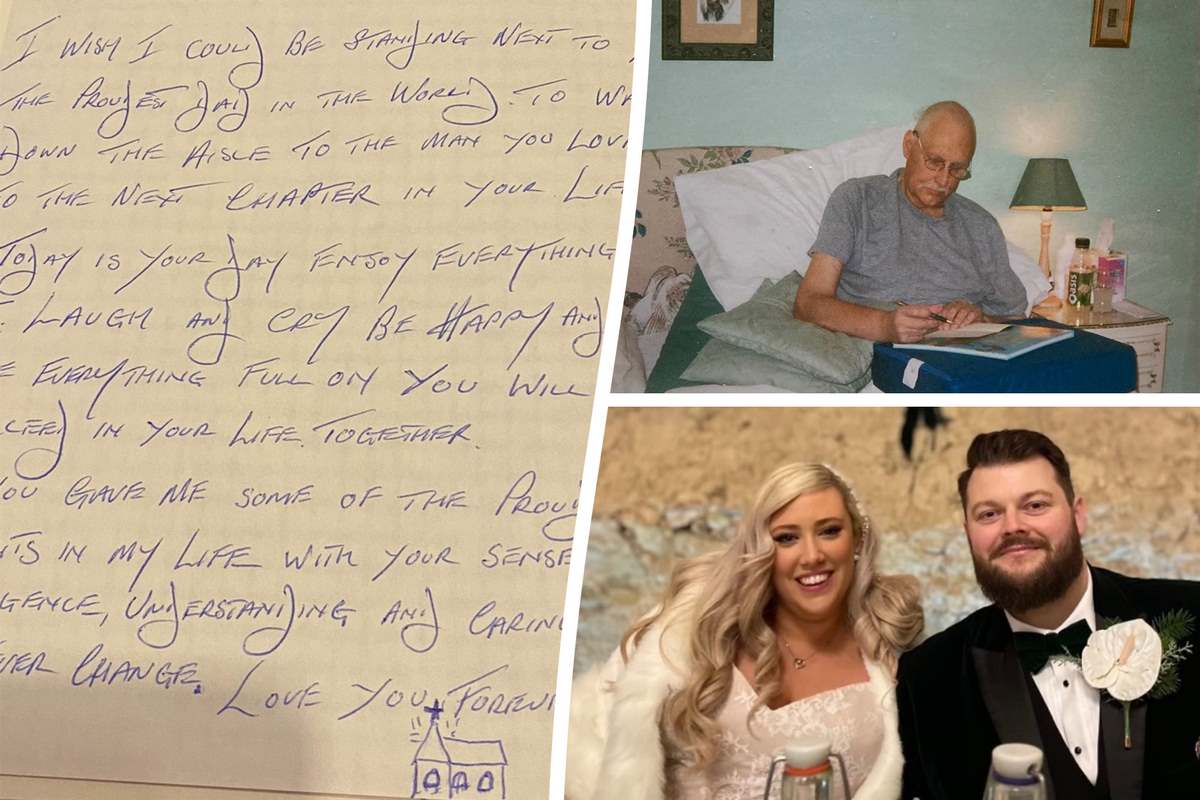 I WISH I COULD BE STANDING NEXT TO
THE PROUDEST DAD IN THE WORLD. TO
DOWN THE AISLE TO THE MAN YOU
TO THE NEXT CHAPTER IN YOUR
TODAY IS YOUR DAY ENJOY EVERYTHING
LAUGH AND CRY BE HAPPY AND
EVERYTHING FULL ON YOU WILL
IN YOUR LIFE TOGETHER.
YOU GAVE ME SOME OF THE
IN MY LIFE WITH YOUR SENSE
UNDERSTANDING AND
CHANGE.
LOVE YOU
OASIS